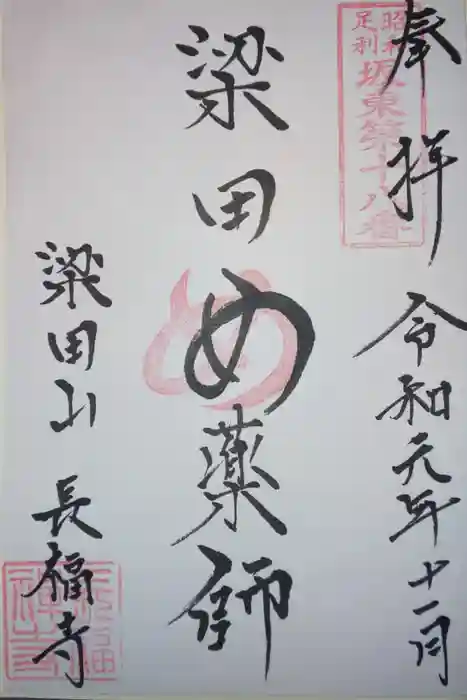 奉拝 令和元年十一月
昭和
足利
坂東第十八番
梁田め薬師
梁田山 長福寺